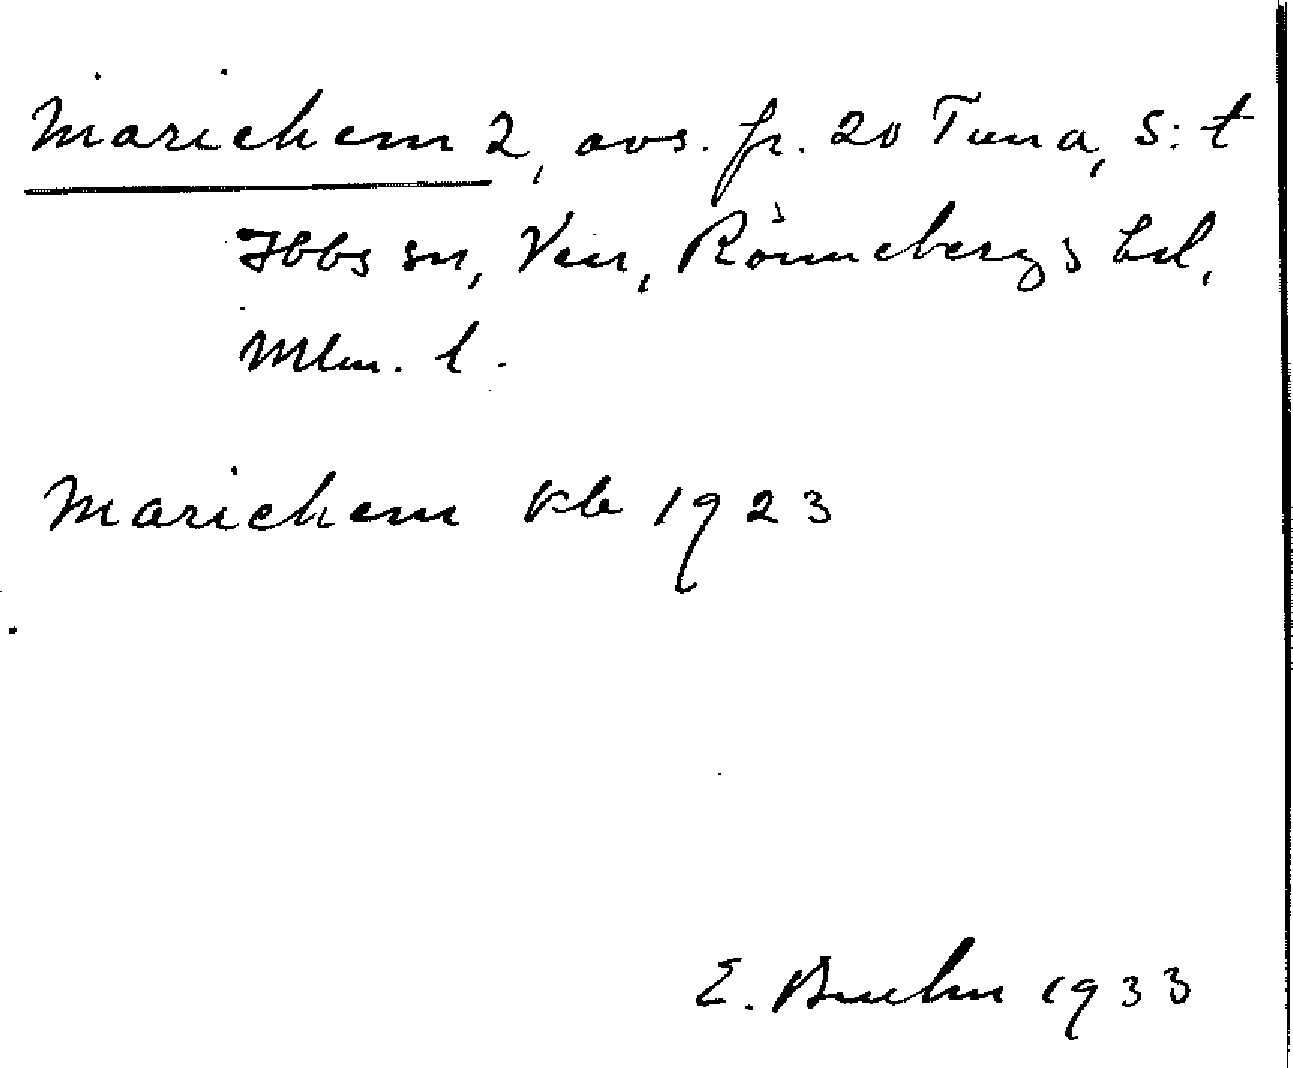 Marichem 2, avs. fr. 20 Tuna, S:t
Ibbs sn, Ven, Rönnebergs hd,
Mlm. l.
Marichem Kb 1923
E. 1933